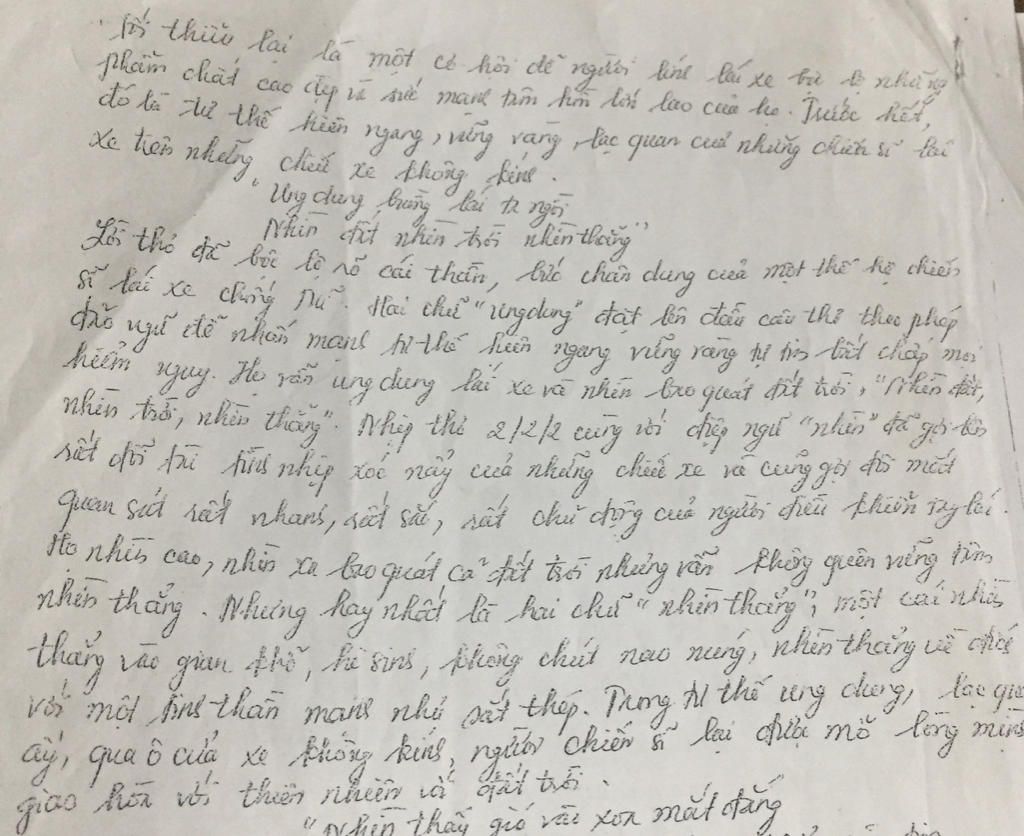 thiếu lại là một cơ hội để người lính lái xe bộc lộ những
phẩm chất cao đẹp và sức mạnh tinh thần lớn lao của họ. Trước hết,
đó là tư thế hiên ngang, vững vàng, lạc quan của những chiến sĩ lái
xe trên những chiếc xe không kính.
"Ung dung, buồng lái ta ngồi
Nhìn đất, nhìn trời nhìn thẳng"
Lời thơ đã bộc lộ rõ cái thần, bức chân dung của một thế hệ chiến
sĩ lái xe chống Mĩ. Hai chữ "ung dung" đặt lên đầu câu thơ theo phép
đảo ngữ để nhấn mạnh tư thế hiên ngang vững vàng tự tin bất chấp mọi
hiểm nguy. Họ vẫn ung dung lái xe và nhìn bao quát đất trời, "Nhìn đất,
nhìn trời, nhìn thẳng". Nhịp thơ 2/2/2 cùng với điệp ngữ "nhìn" đã gợi lên
rất đỗi tài tình nhịp xóc nảy của những chiếc xe và cũng gợi đôi mắt
quan sát rất nhanh, rất sắc, rất chủ động của người điều khiển tay lái.
Họ nhìn cao, nhìn xa bao quát cả đất trời nhưng vẫn không quên vững tâm
nhìn thẳng. Nhưng hay nhất là hai chữ "nhìn thẳng", một cái nhìn
thẳng vào gian khổ, hi sinh, không chút nao núng, nhìn thẳng về đích
với một tinh thần mạnh như sắt thép. Trong tư thế ung dung, lạc quan
ấy, qua ô cửa xe không kính, người chiến sĩ lại được mở lòng mình
giao hòa với thiên nhiên với đất trời.
"Nhìn thấy gió vào xoa mắt đắng